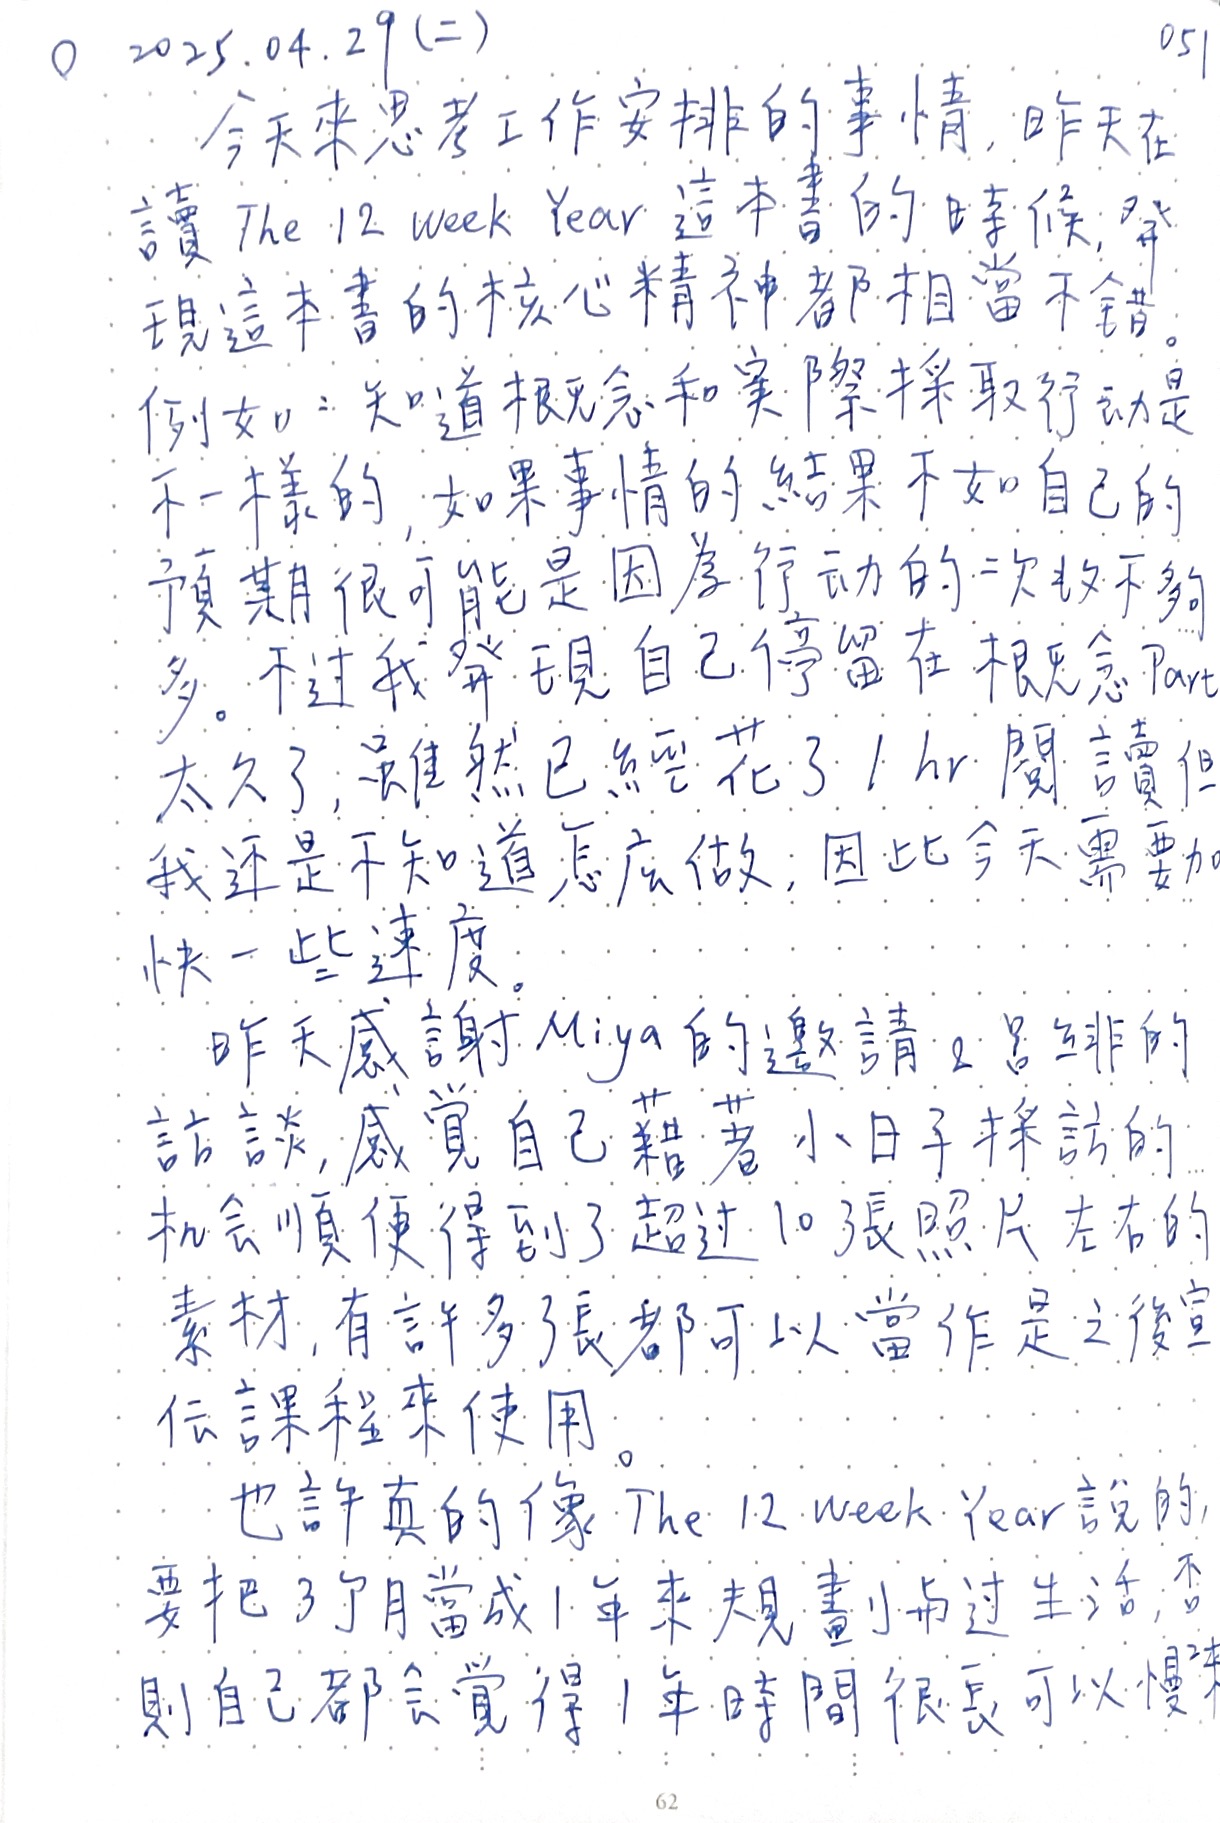 2025.04.29(二)
051
今天來思考工作安排的事情,昨天在
讀 The 12 Week Year 這本書的時候,發
現這本書的核心精神都相當不錯。
例如:知道概念和實際採取行动是
不一樣的,如果事情的結果不如自己的
預期很可能是因為行动的次数不夠
多。不过我發現自己停留在概念Part
太久了,雖然已經花了1hr閱讀但
我还是不知道怎应做,因此今天需要加
快一些速度。
昨天感謝Miya的邀請&呂緋的
訪談,感覺自己藉著小日子採訪的
机会順便得到了超过10張照片左右的
素材,有許多張都可以當作是之後宣
伝課程來使用。
也許真的像 The 12 Week Year說的,
要把3个月當成1年來規畫与过生活,否
則自己都会覺得1年時間很長可以慢來
62